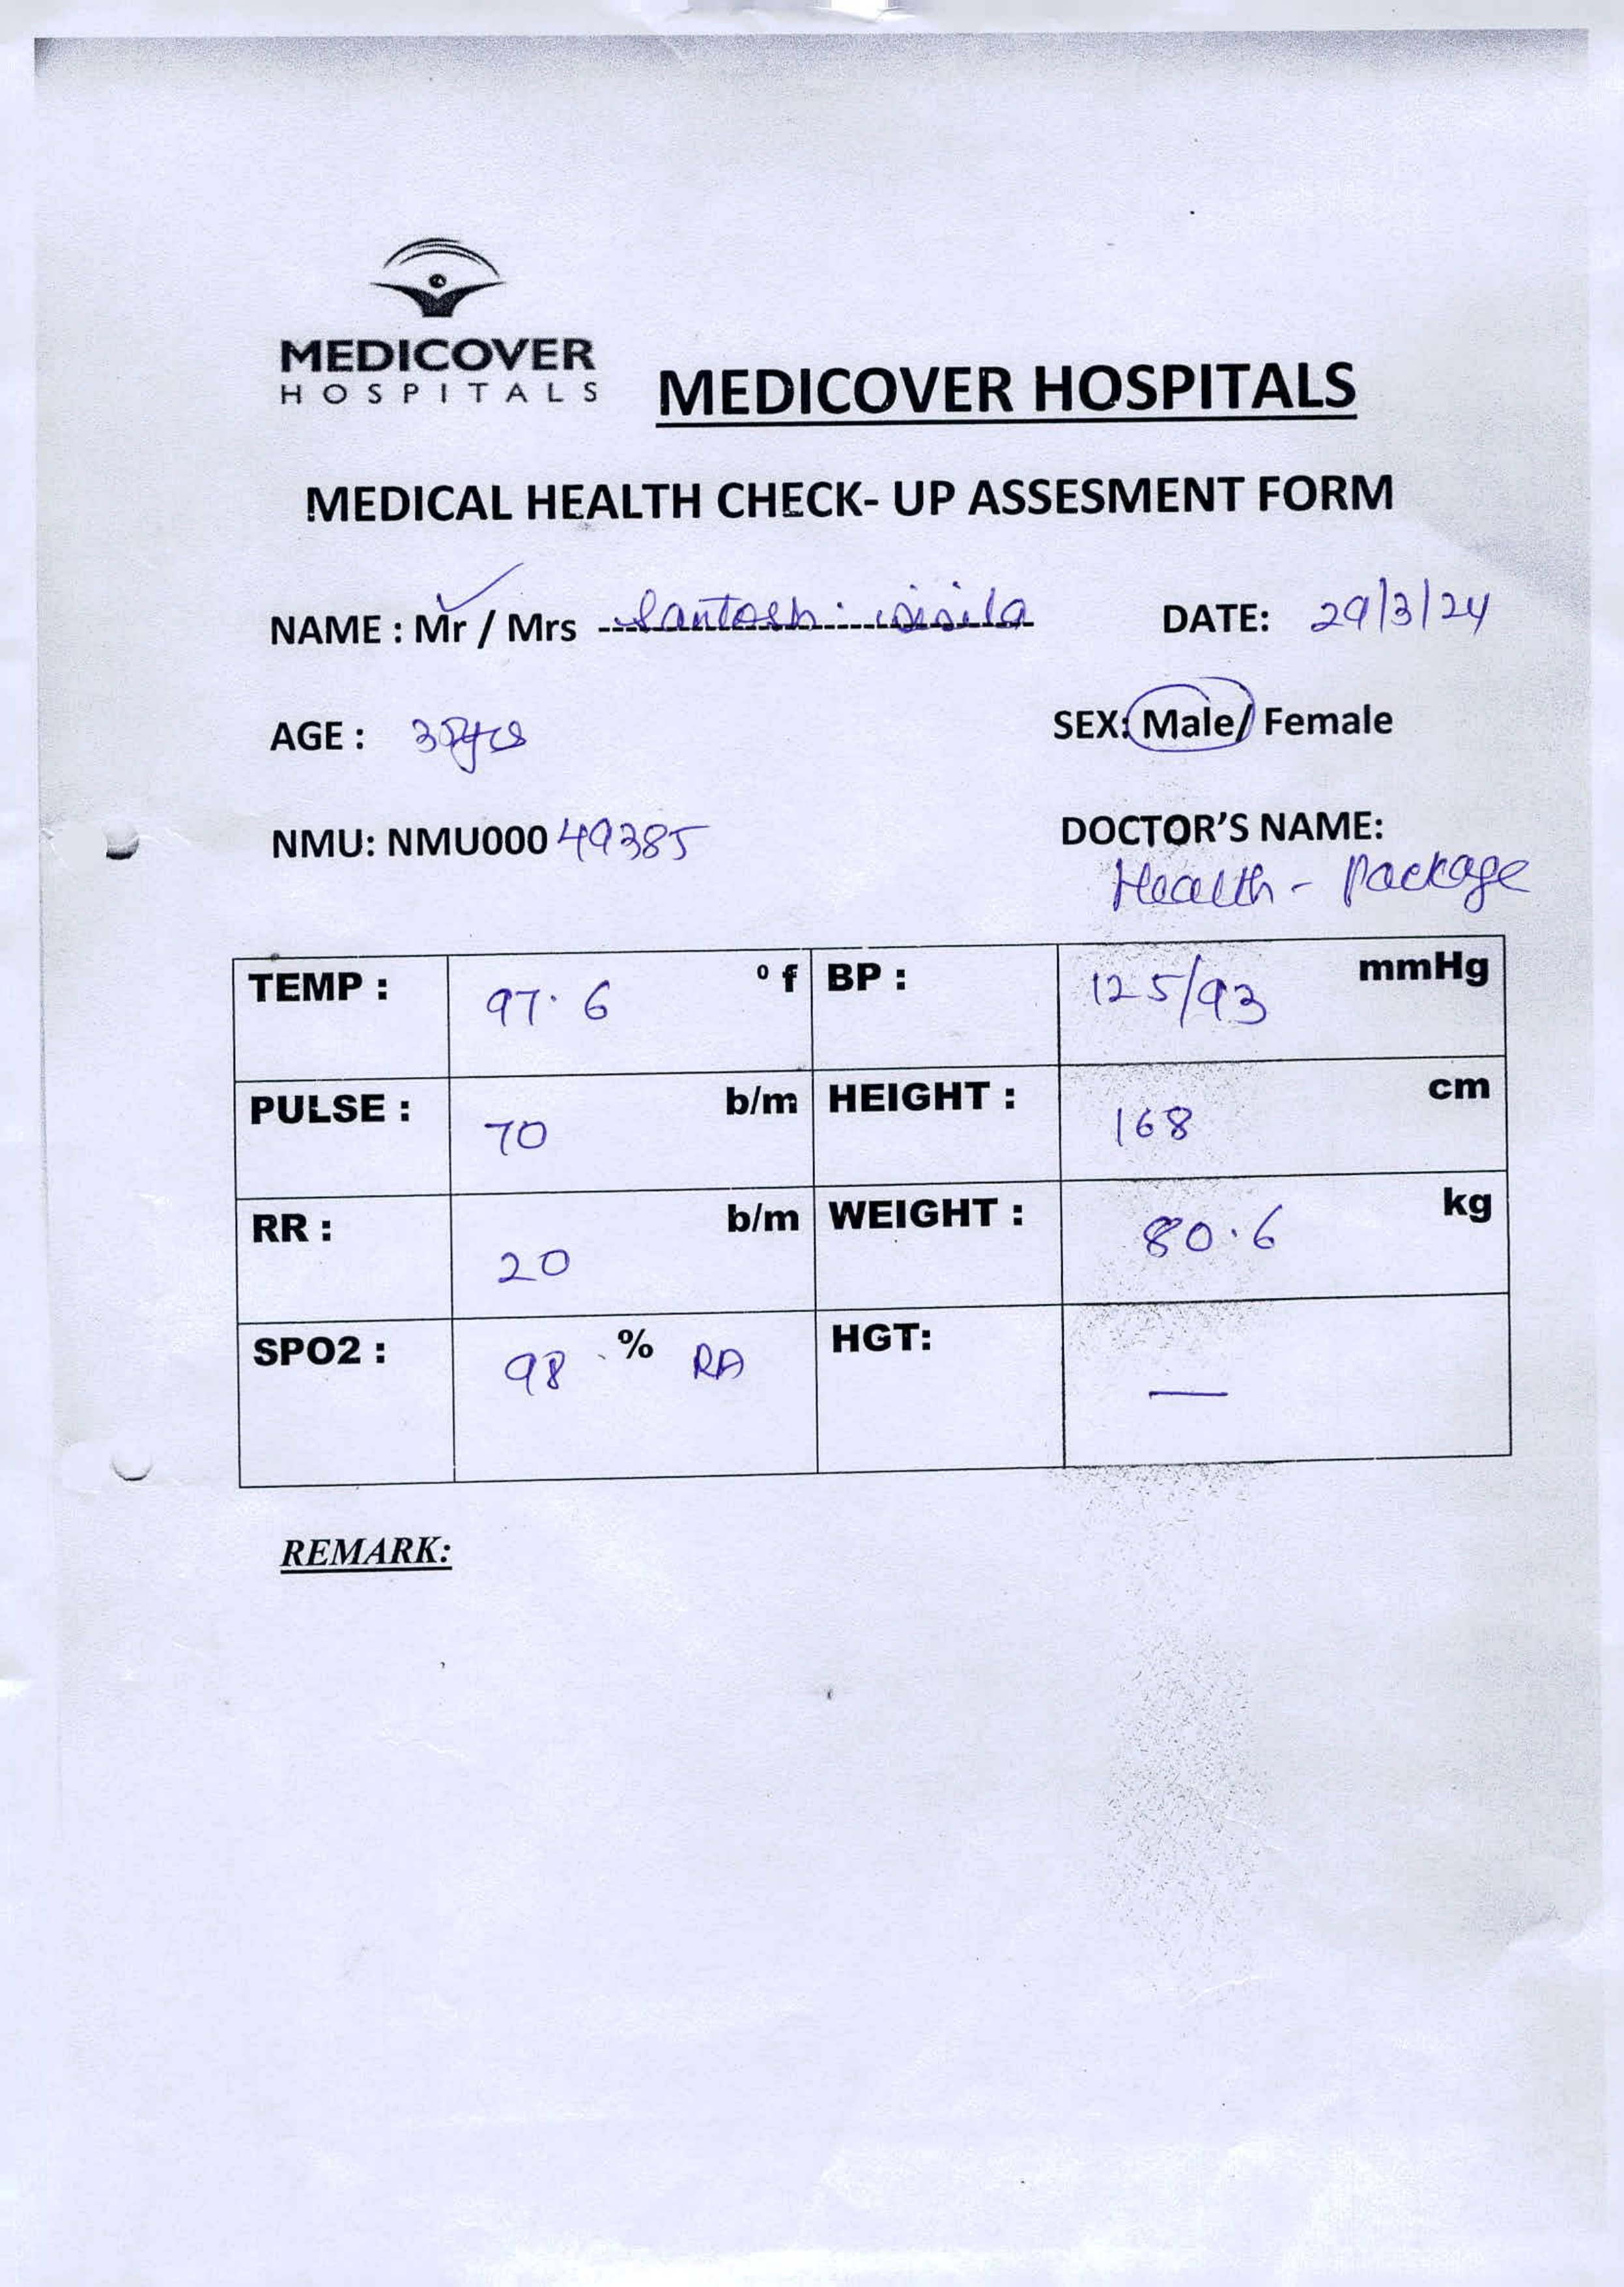 MEDICOVER
HOSPITALS
MEDICOVER HOSPITALS
MEDICAL HEALTH CHECK- UP ASSESMENT FORM
NAME : Mr / Mrs Santosh DATE: 29/3/24
AGE : SEX: Male/ Female
NMU: NMU000 49385 DOCTOR'S NAME:
Health - Package
TEMP : 97.6 º f BP : 125/93 mmHg
PULSE : 70 b/m HEIGHT : 168 cm
RR : 20 b/m WEIGHT : 80.6 kg
SPO2 : 98 % RA HGT: —
REMARK: